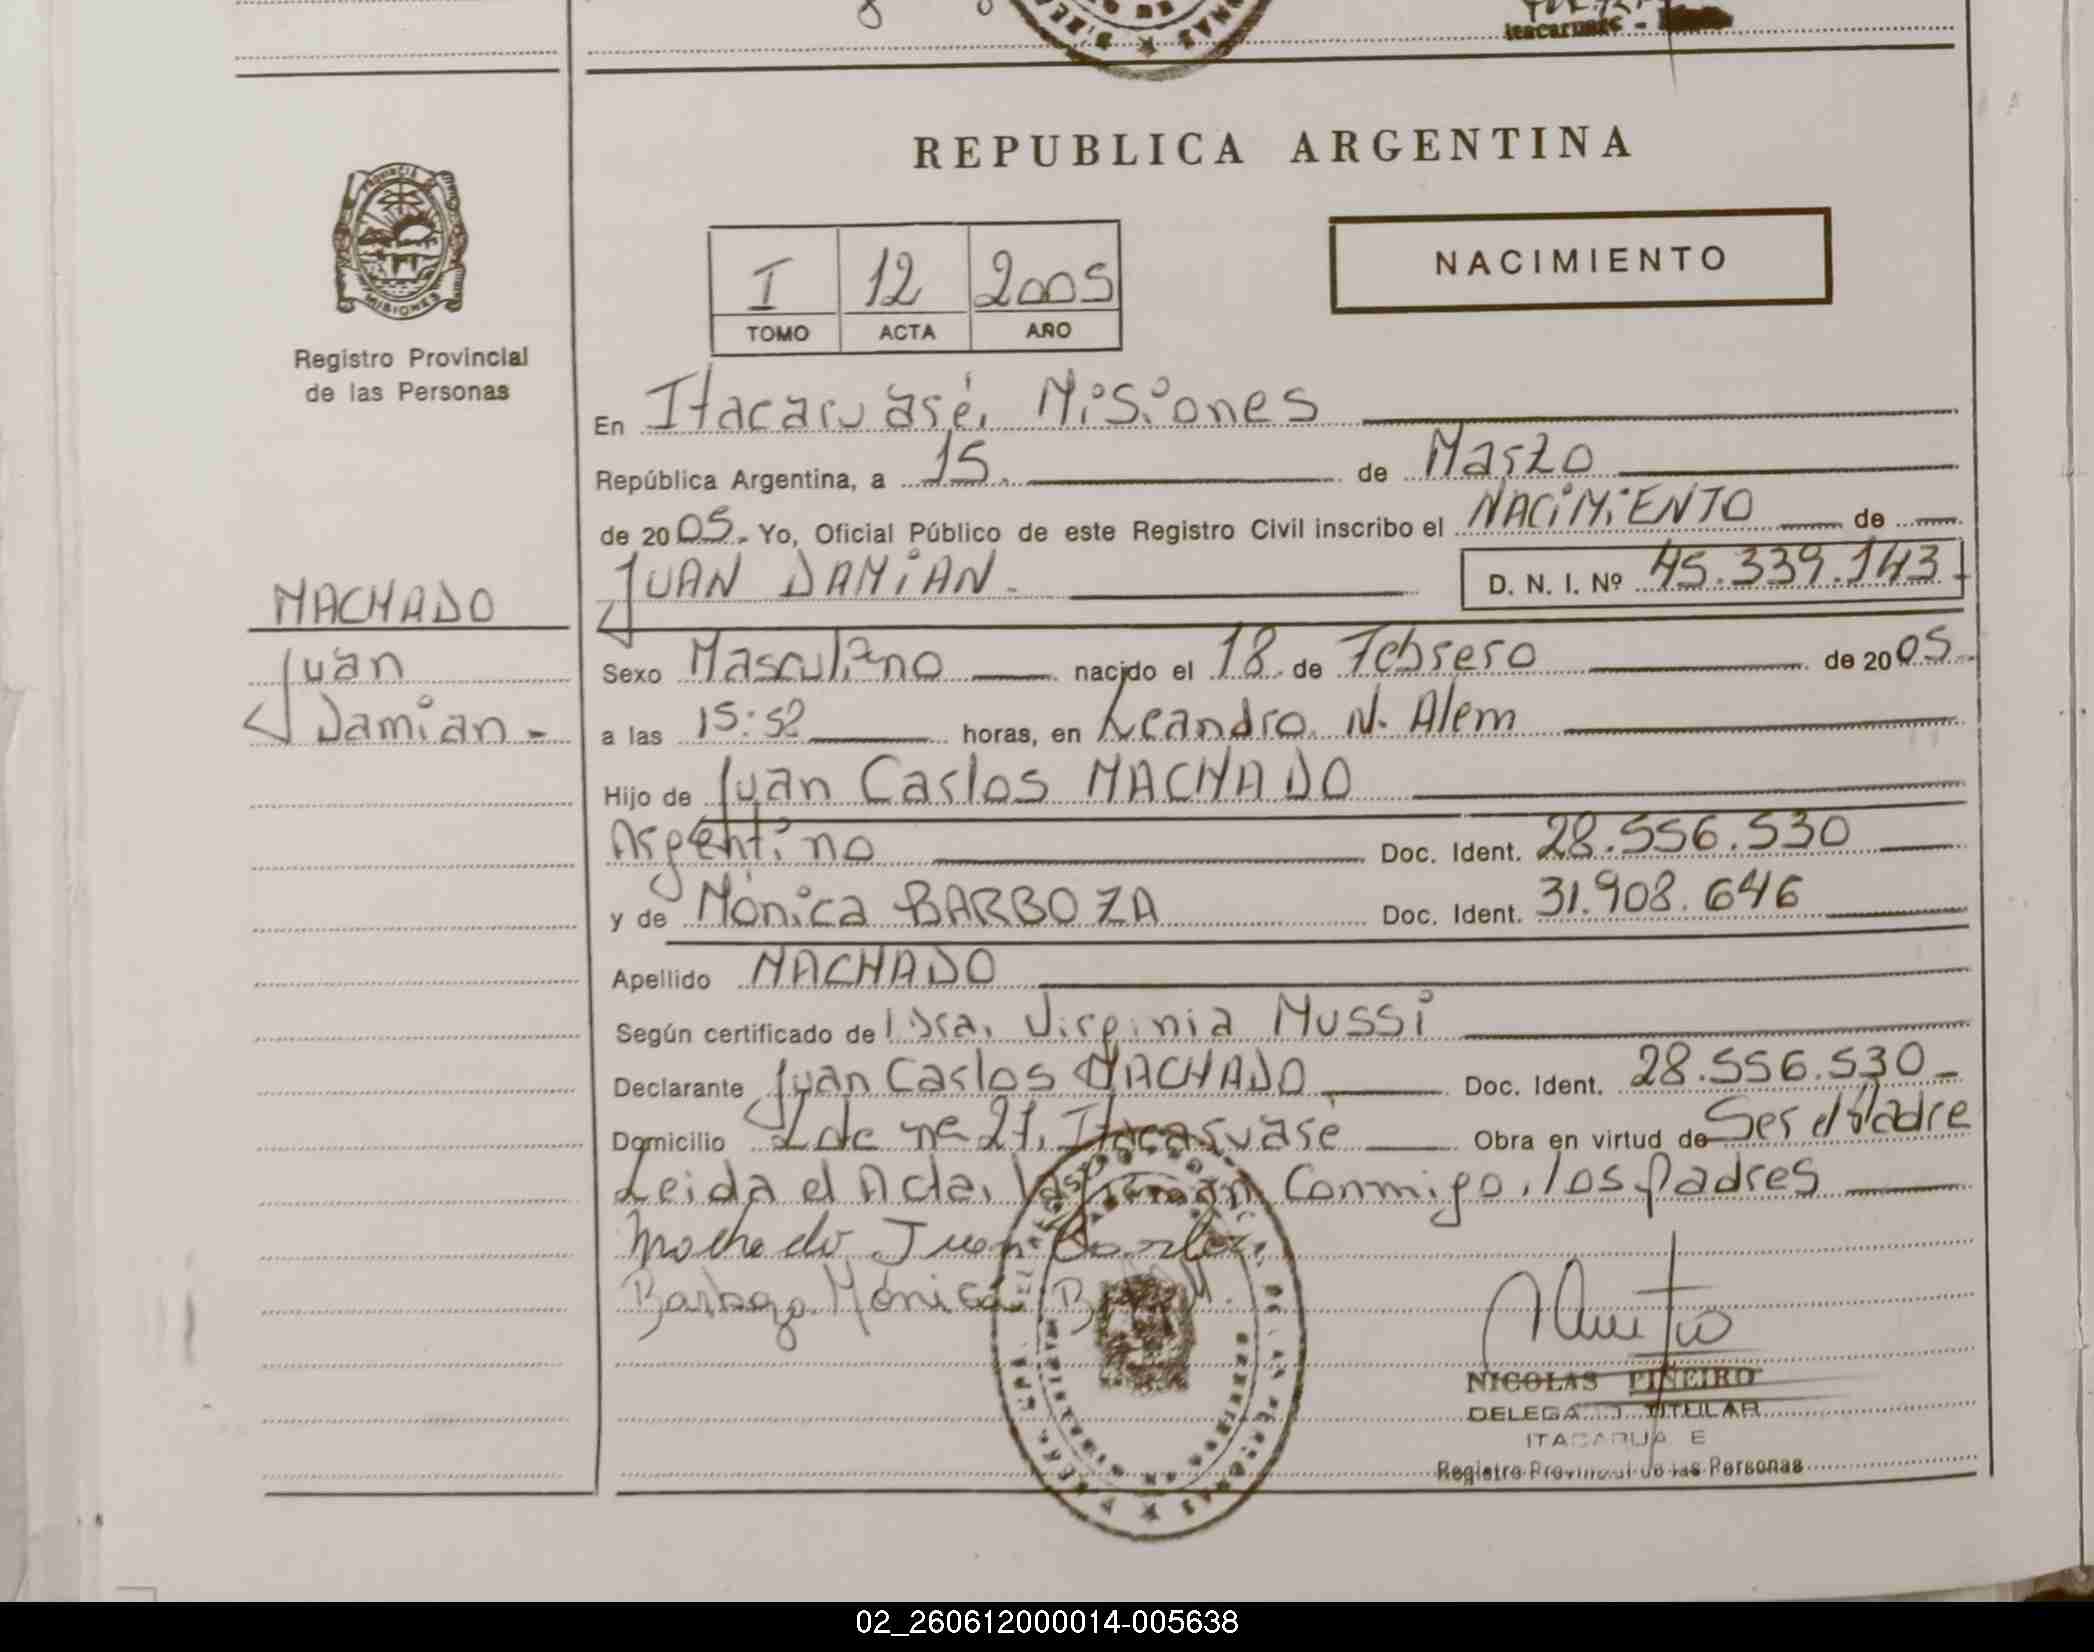 Itacaruare -
REPUBLICA ARGENTINA
PROVINCIA DE MISIONES
Registro Provincial
de las Personas
I 12 2005
TOMO ACTA AÑO
NACIMIENTO
En Itacaruaré, Misiones
República Argentina, a 15. de Marzo
de 2005. Yo, Oficial Público de este Registro Civil inscribo el NACIMIENTO de
JUAN DAMIAN. D. N. I. Nº 45.339.143
MACHADO
Juan
Damian -
Sexo Masculino nacido el 18 de Febrero de 2005.
a las 15:52 horas, en Leandro N. Alem
Hijo de Juan Carlos MACHADO
Argentino Doc. Ident. 28.556.530
y de Mónica BARBOZA Doc. Ident. 31.908.646
Apellido MACHADO
Según certificado de Dra. Virginia Mussi
Declarante Juan Carlos MACHADO Doc. Ident. 28.556.530 -
Domicilio Lote nº 27, Itacaruaré Obra en virtud de Ser el Padre
Leida el Acta, la firman Conmigo, los Padres
Machado Juan Carlos
Barboza Mónica B. M.
NICOLAS PIÑEIRO
DELEGADO TITULAR
ITACARUARE
Registro Provincial de las Personas
02_260612000014-005638